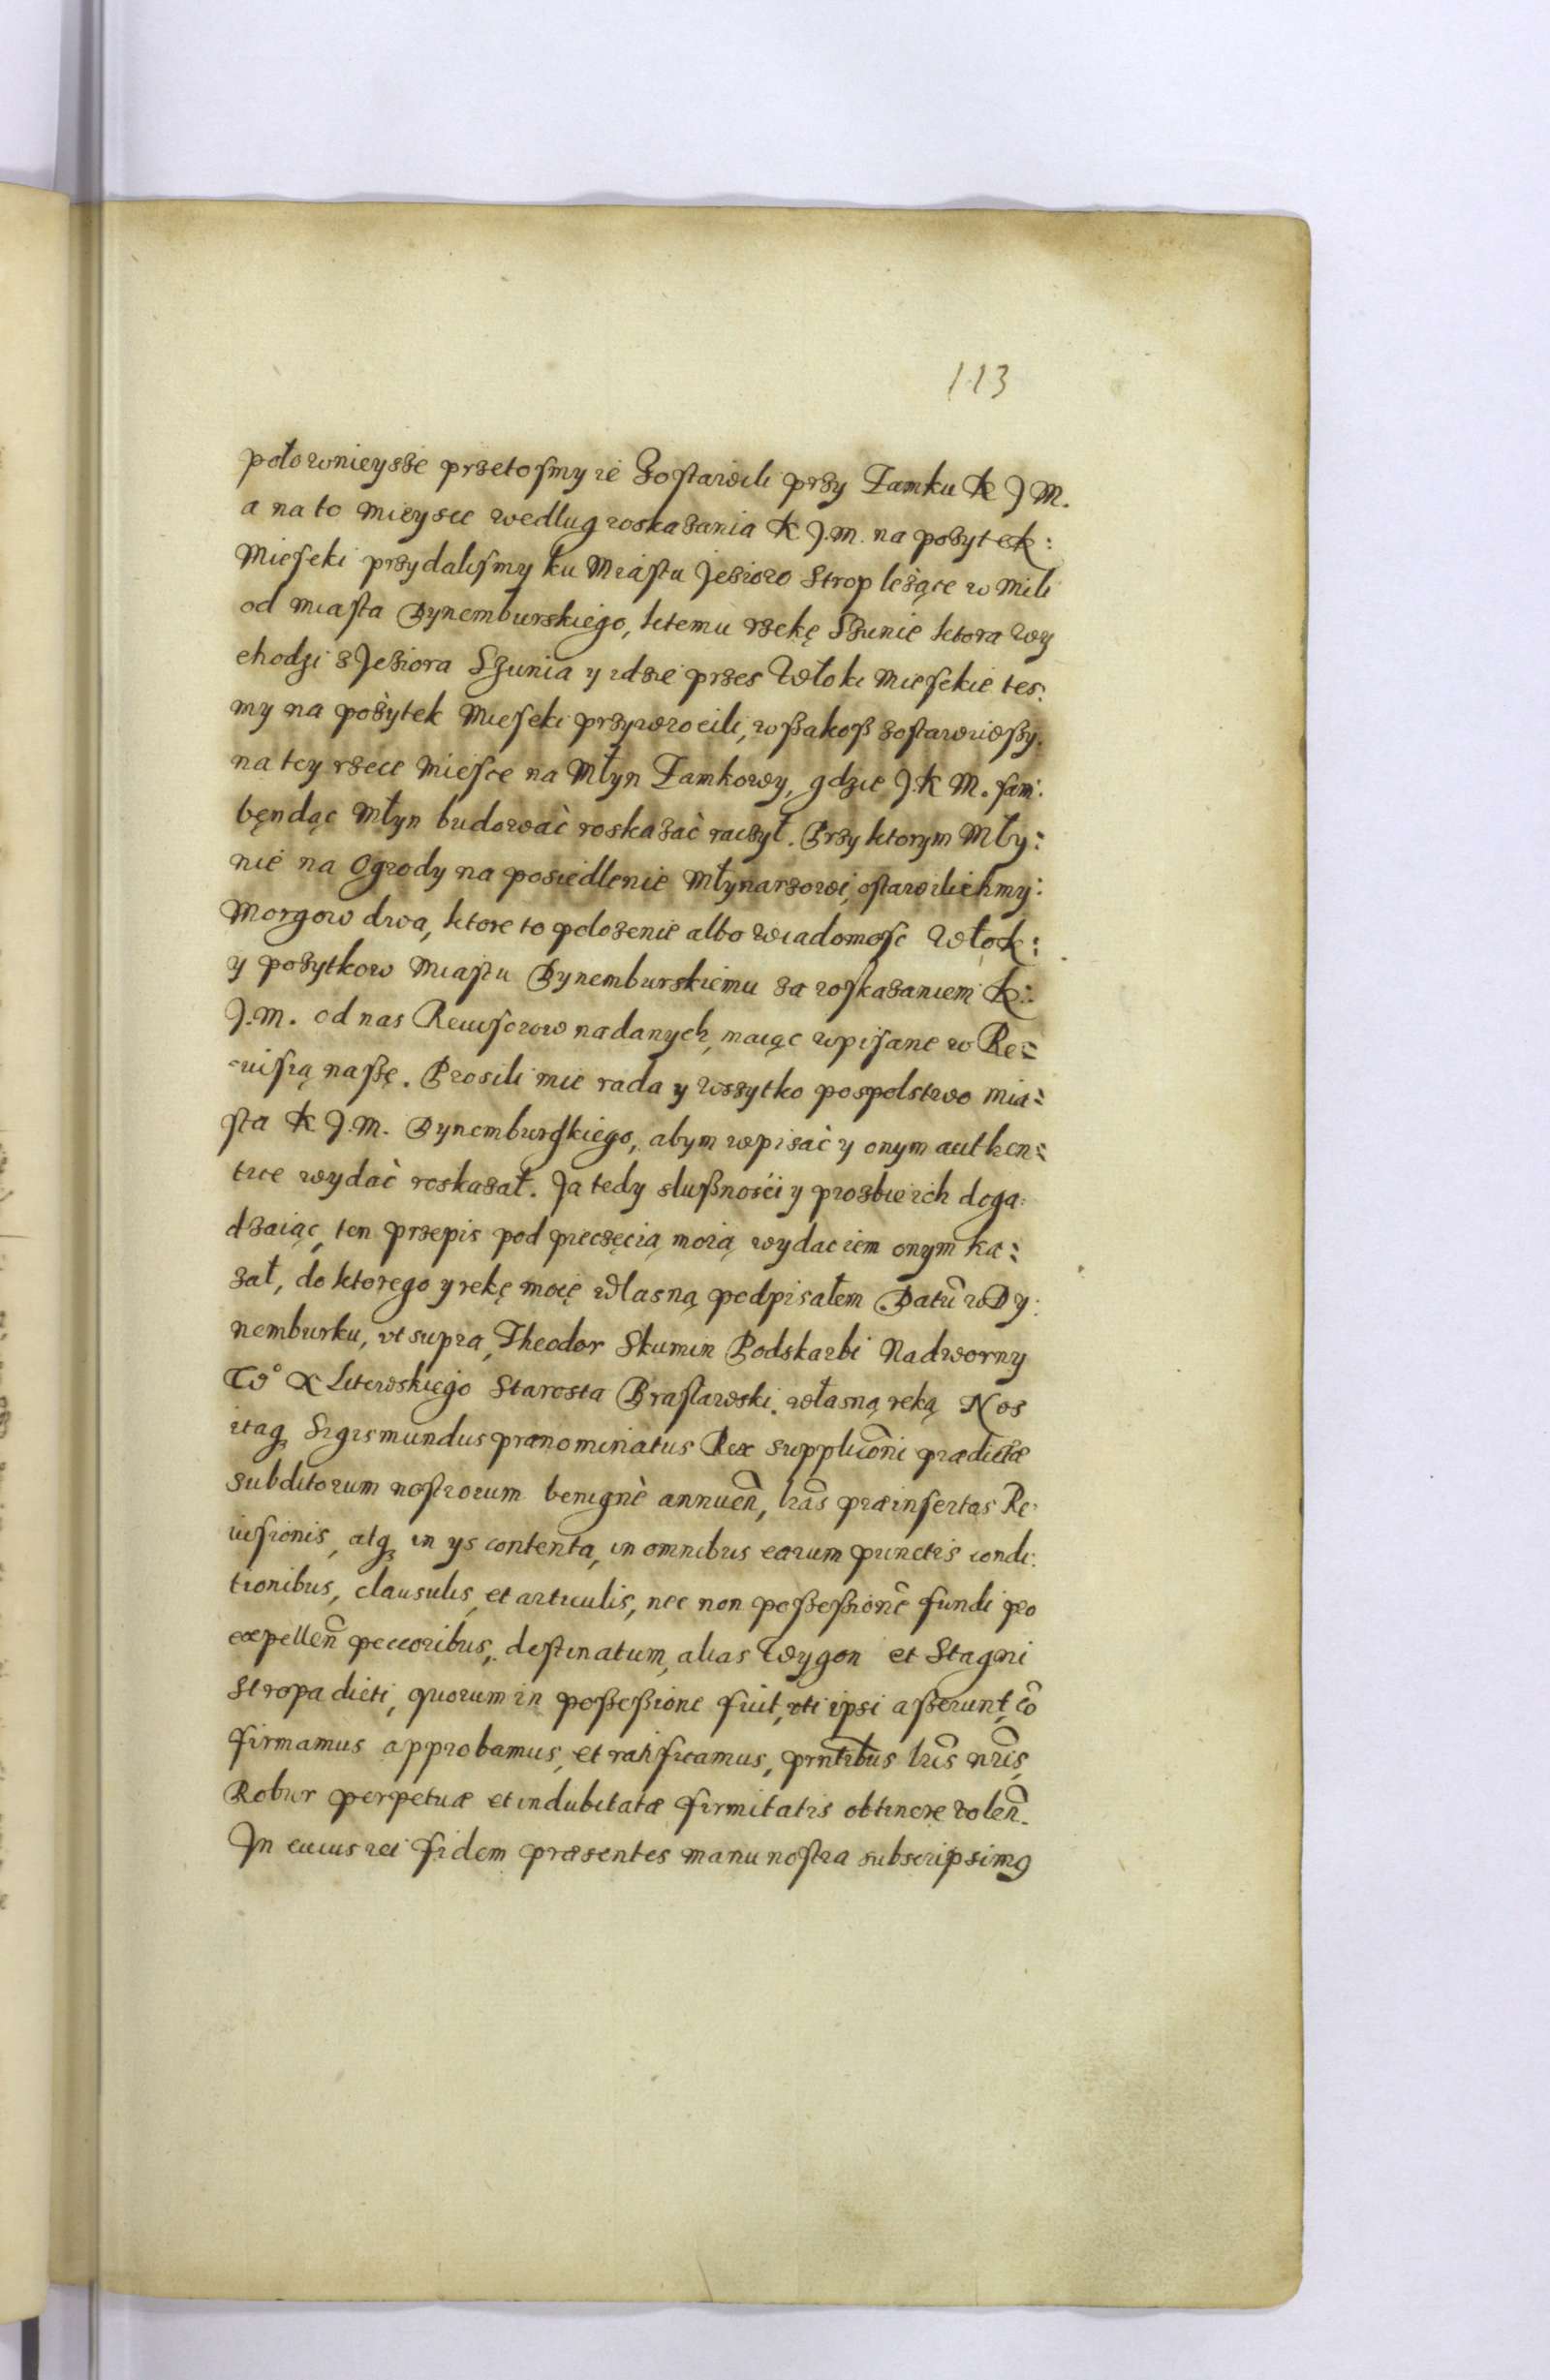 113
połownieysze przetosmy ie Zostawili przy Zamku K J M.
a na to mieysce wedlug roskazania K. J. M. na pozytek:
Mieseki przydalismy ku Miastu Jezioro Strop leżące w Mili
od miasta Dynemburskiego, ktemu rzekę Szunie ktora wy
chodzi z Jeziora Szunia y idzie przes Włoki Miesckie tes:
my na pożytek Mieseki przywrocili, wßakoß zostawiwßy.
na tey rzece Miesce na Młyn Zamkowy, gdzie J. K M. sam:
będąc Młyn budować roskazać raczył. Przy ktorym Mły:
nie na Ogrody na posiedlenie Młynarzowi, ostawilichmy:
Morgow dwa, ktore to polozenie albo wiadomosc Włok:
y pozytkow Miastu Dynemburskiemu za roskazaniem K:
J. M. od nas Reuisorow nadanych, maiąc wpisane w Re:
uisią naßę. Prosili mie rada y wszytko pospolstwo mia:
sta K J. M. Dynemburskiego, abym wpisać y onym authen:
tice wydać roskazał. Ja tedy slußności y prozbie ich doga:
dzaiąc, ten przepis pod pieczęcią moią wydac iem onym ka:
zał, do ktorego y rekę moię własną podpisałem Datũ w Dy:
nemburku, vt supra, Theodor Skumin Podskarbi Nadworny
Wº X Litewskiego Starosta Brasławski. własną reką Nos
itaq Sigismundus prænominatus Rex supplicõni prædictæ
subditorum nostrorum benignè annuen̄, lr̃as præinsertas Re:
uisionis, atq in ys contenta, in omnibus earum punctis condi:
tionibus, clausulis, et articulis, nec non poßeßionẽ fundi pro
expellen̄ peccoribus, destinatum, alias Wygon et Stagni
Stropa dicti, quorum in poßeßione fuit, vti ipsi aßerunt, cõ
firmamus approbamus, et ratificamus, prñtibus lr̃is nr̃is,
Robur perpetuæ et indubitatæ firmitatis obtinere volen̄.
In cuius rei fidem præsentes manu nostra subscripsimq